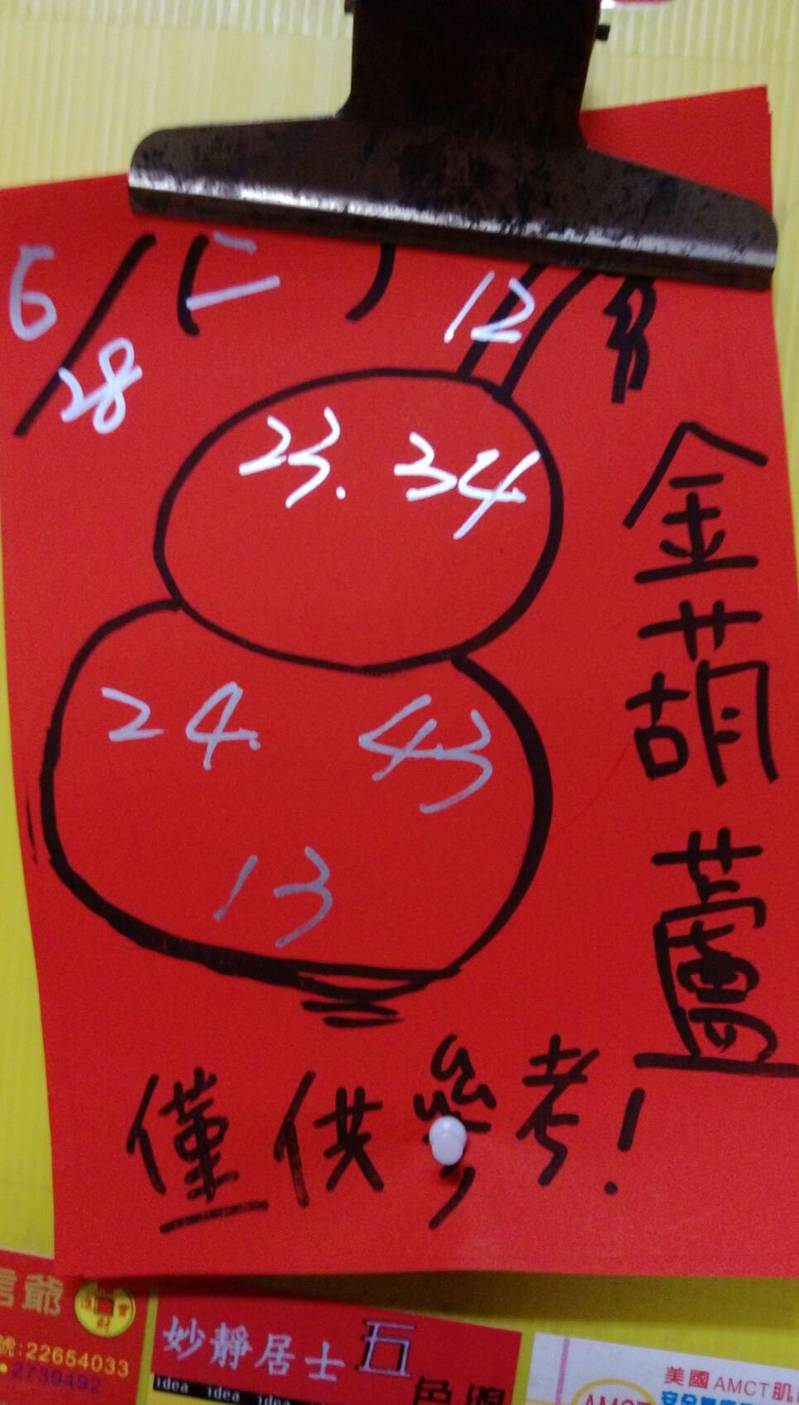 6/28 (二) 12
23. 34
24. 43
13
金葫蘆
僅供參考!
信爺
號:22654033
2739492
妙靜居士 五
idea idea idea
美國AMCT肌
AMCT